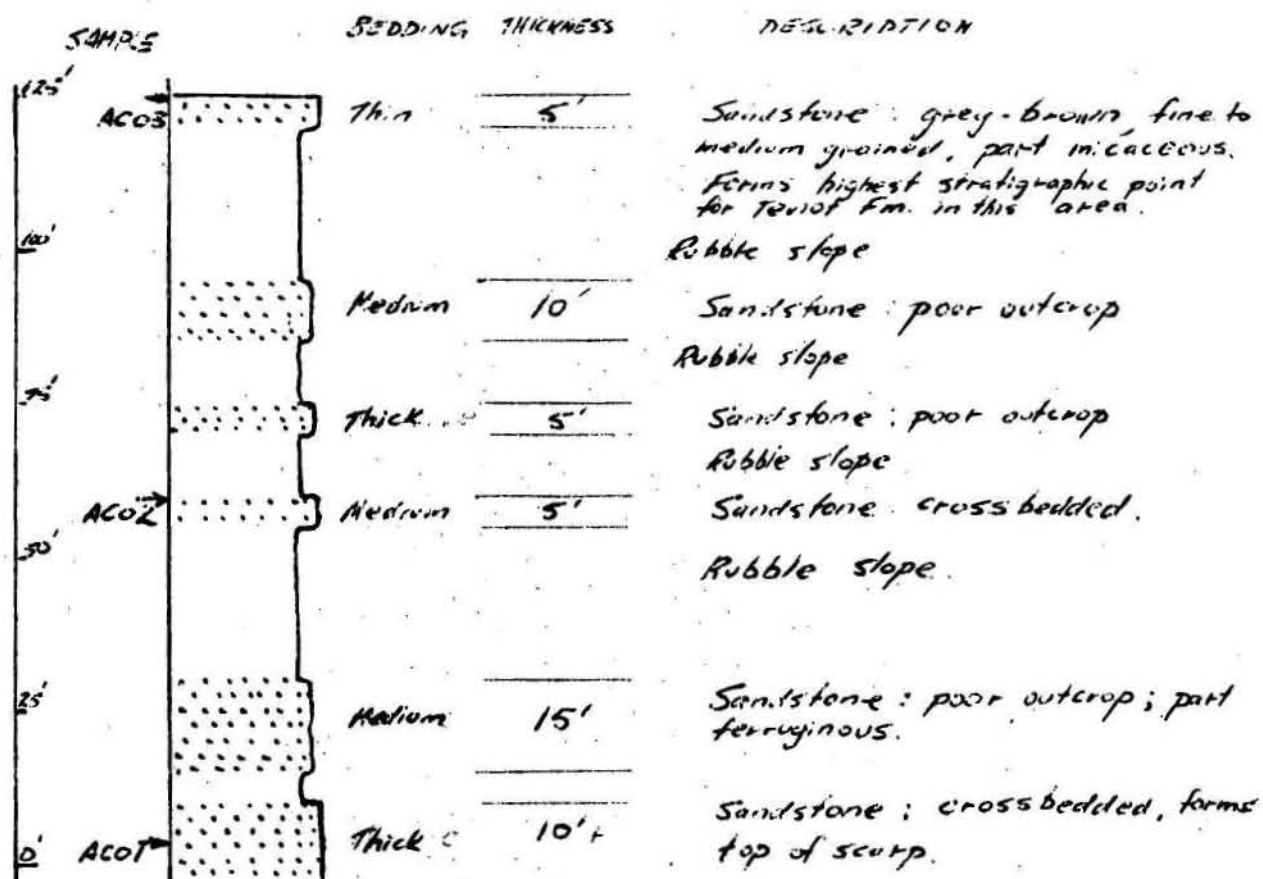 SAMPLE BEDDING THICKNESS DESCRIPTION
125'
AC03 Thin 5' Sandstone : grey-brown fine to
medium grained, part micaceous.
Forms highest stratigraphic point
for Teviot Fm. in this area.
100' Rubble slope
Medium 10' Sandstone : poor outcrop
Rubble slope
75'
Thick 5' Sandstone : poor outcrop
Rubble slope
AC02 Medium 5' Sandstone crossbedded.
50' Rubble slope.
25' Medium 15' Sandstone : poor outcrop ; part
ferruginous.
Sandstone ; crossbedded, forms
0' AC01 Thick 10'+ top of scarp.